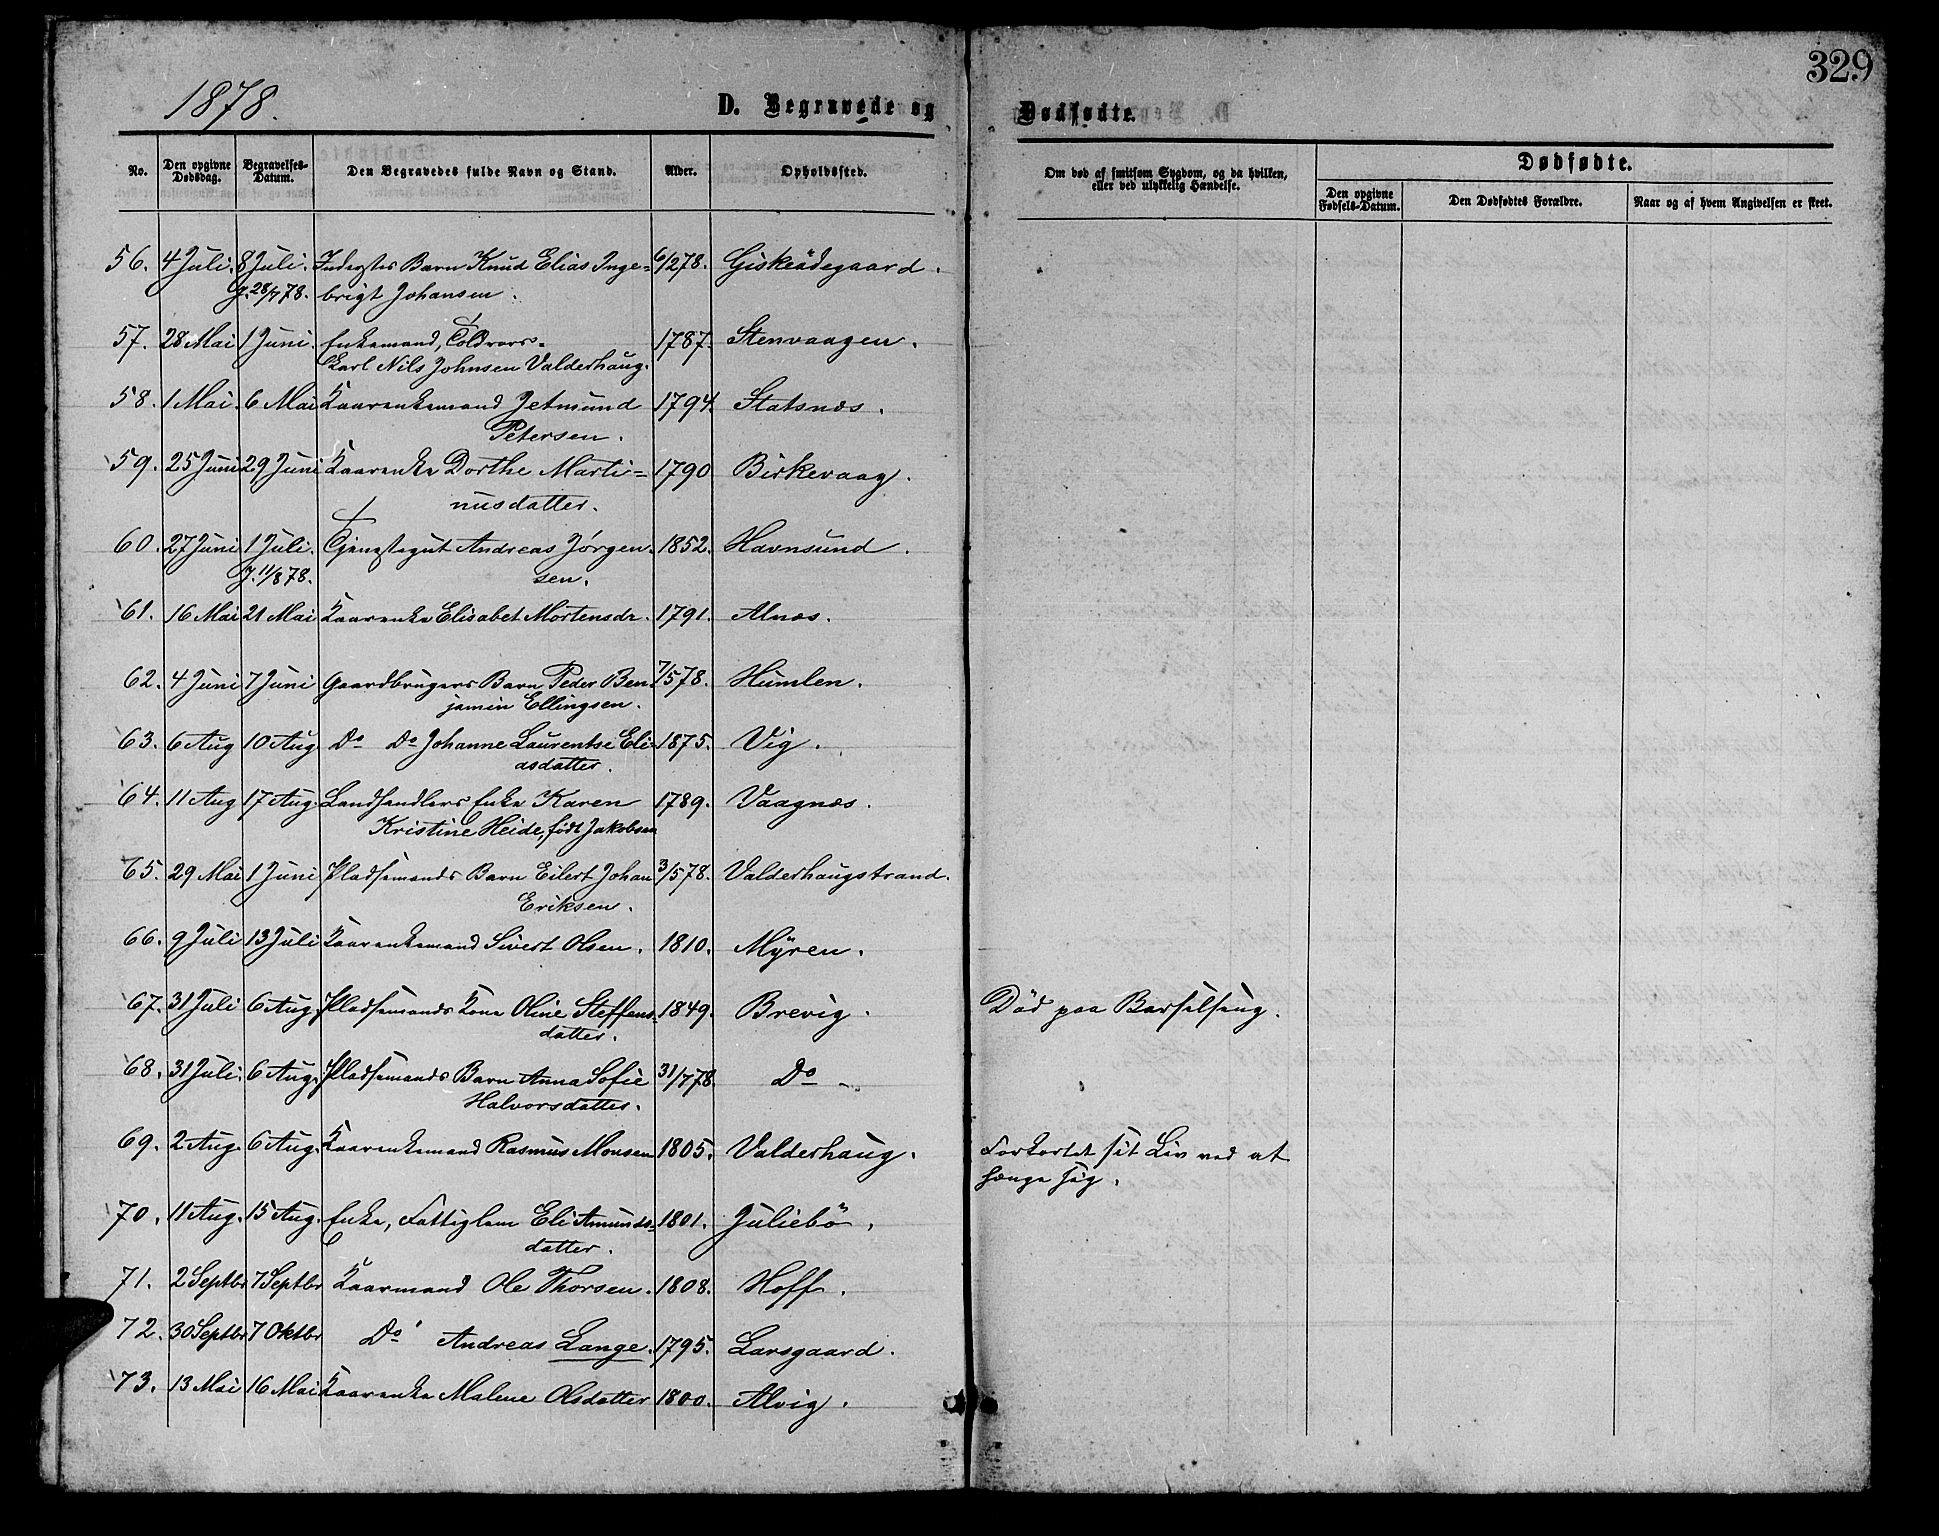 329
1878.
D. Begravede og Dødfødte.
No. Den opgivne Dødsdag. Begravelses-Datum. Den Begravedes fulde Navn og Stand. Alder. Opholdssted. Om død af smitsom Sygdom, og da hvilken, eller ved ulykkelig Hændelse. Dødfødte.
Den opgivne Fødsels-Datum. Den Dødfødtes Forældre. Naar og af hvem Angivelsen er skeet.
56. 4 Juli. 8 Juli. Inderstes Barn Knud Elias Inge= 6/2 78. Giskeödegaard.
J. 28/7 78. brigt Johansen.
57. 28 Mai 1 Juni. Enkemand, Toldrors-
karl Nils Johnsen Valderhaug. 1787. Stenvaagen.
58. 1 Mai. 6 Mai Kaarenkemand Jetmund 1794. Statsnæs.
Petersen.
59. 25 Juni 29 Juni Kaarenke Dorthe Marti= 1790 Birkevaag.
nusdatter.
60. 27 Juni 1 Juli. Tjenestegut Andreas Jørgen- 1852. Havnsund.
J. 11/8 78. sen.
61. 16 Mai 21 Mai Kaarenke Elisabet Mortensdr. 1791. Alnæs.
62. 4 Juni 7 Juni Gaardbrugers Barn Peder Ben- 7/5 78. Humlen.
jamin Ellingsen.
63. 6 Aug 10 Aug. Do Do Johanne Laurentse Eli- 1875. Vig.
asdatter.
64. 11 Aug 17 Aug. Landhandlers Enke Karen 1789. Vaagnæs.
Kristine Heide, født Jakobsen
65. 29 Mai 1 Juni Pladsemands Barn Eilert Johan 3/5 78. Valderhaugstrand.
Eriksen.
66. 9 Juli 13 Juli Kaarenkemand Sivert Olsen. 1810. Myren.
67. 31 Juli 6 Aug. Pladsemands Kone Oline Steffens- 1849. Brevig. Död paa Barselseng.
datter.
68. 31 Juli. 6 Aug. Pladsemands Barn Anna Sofie 31/7 78 Do
Halvorsdatter.
69. 2 Aug. 6 Aug. Kaarenkemand Rasmus Monsen 1805. Valderhaug. Forkortet sit Liv ved at
hænge sig.
70. 11 Aug. 15 Aug. Enke, Fattiglem Eli Amunds- 1801. Juliebö.
datter.
71. 2 Septbr 7 Septbr Kaarmand Ole Thorsen. 1808. Hoff.
72. 30 Septbr 7 Oktbr Do Andreas Lange. 1795. Larsgaard.
73. 13 Mai 16 Mai Kaarenke Malene Olsdatter 1800. Alvig.